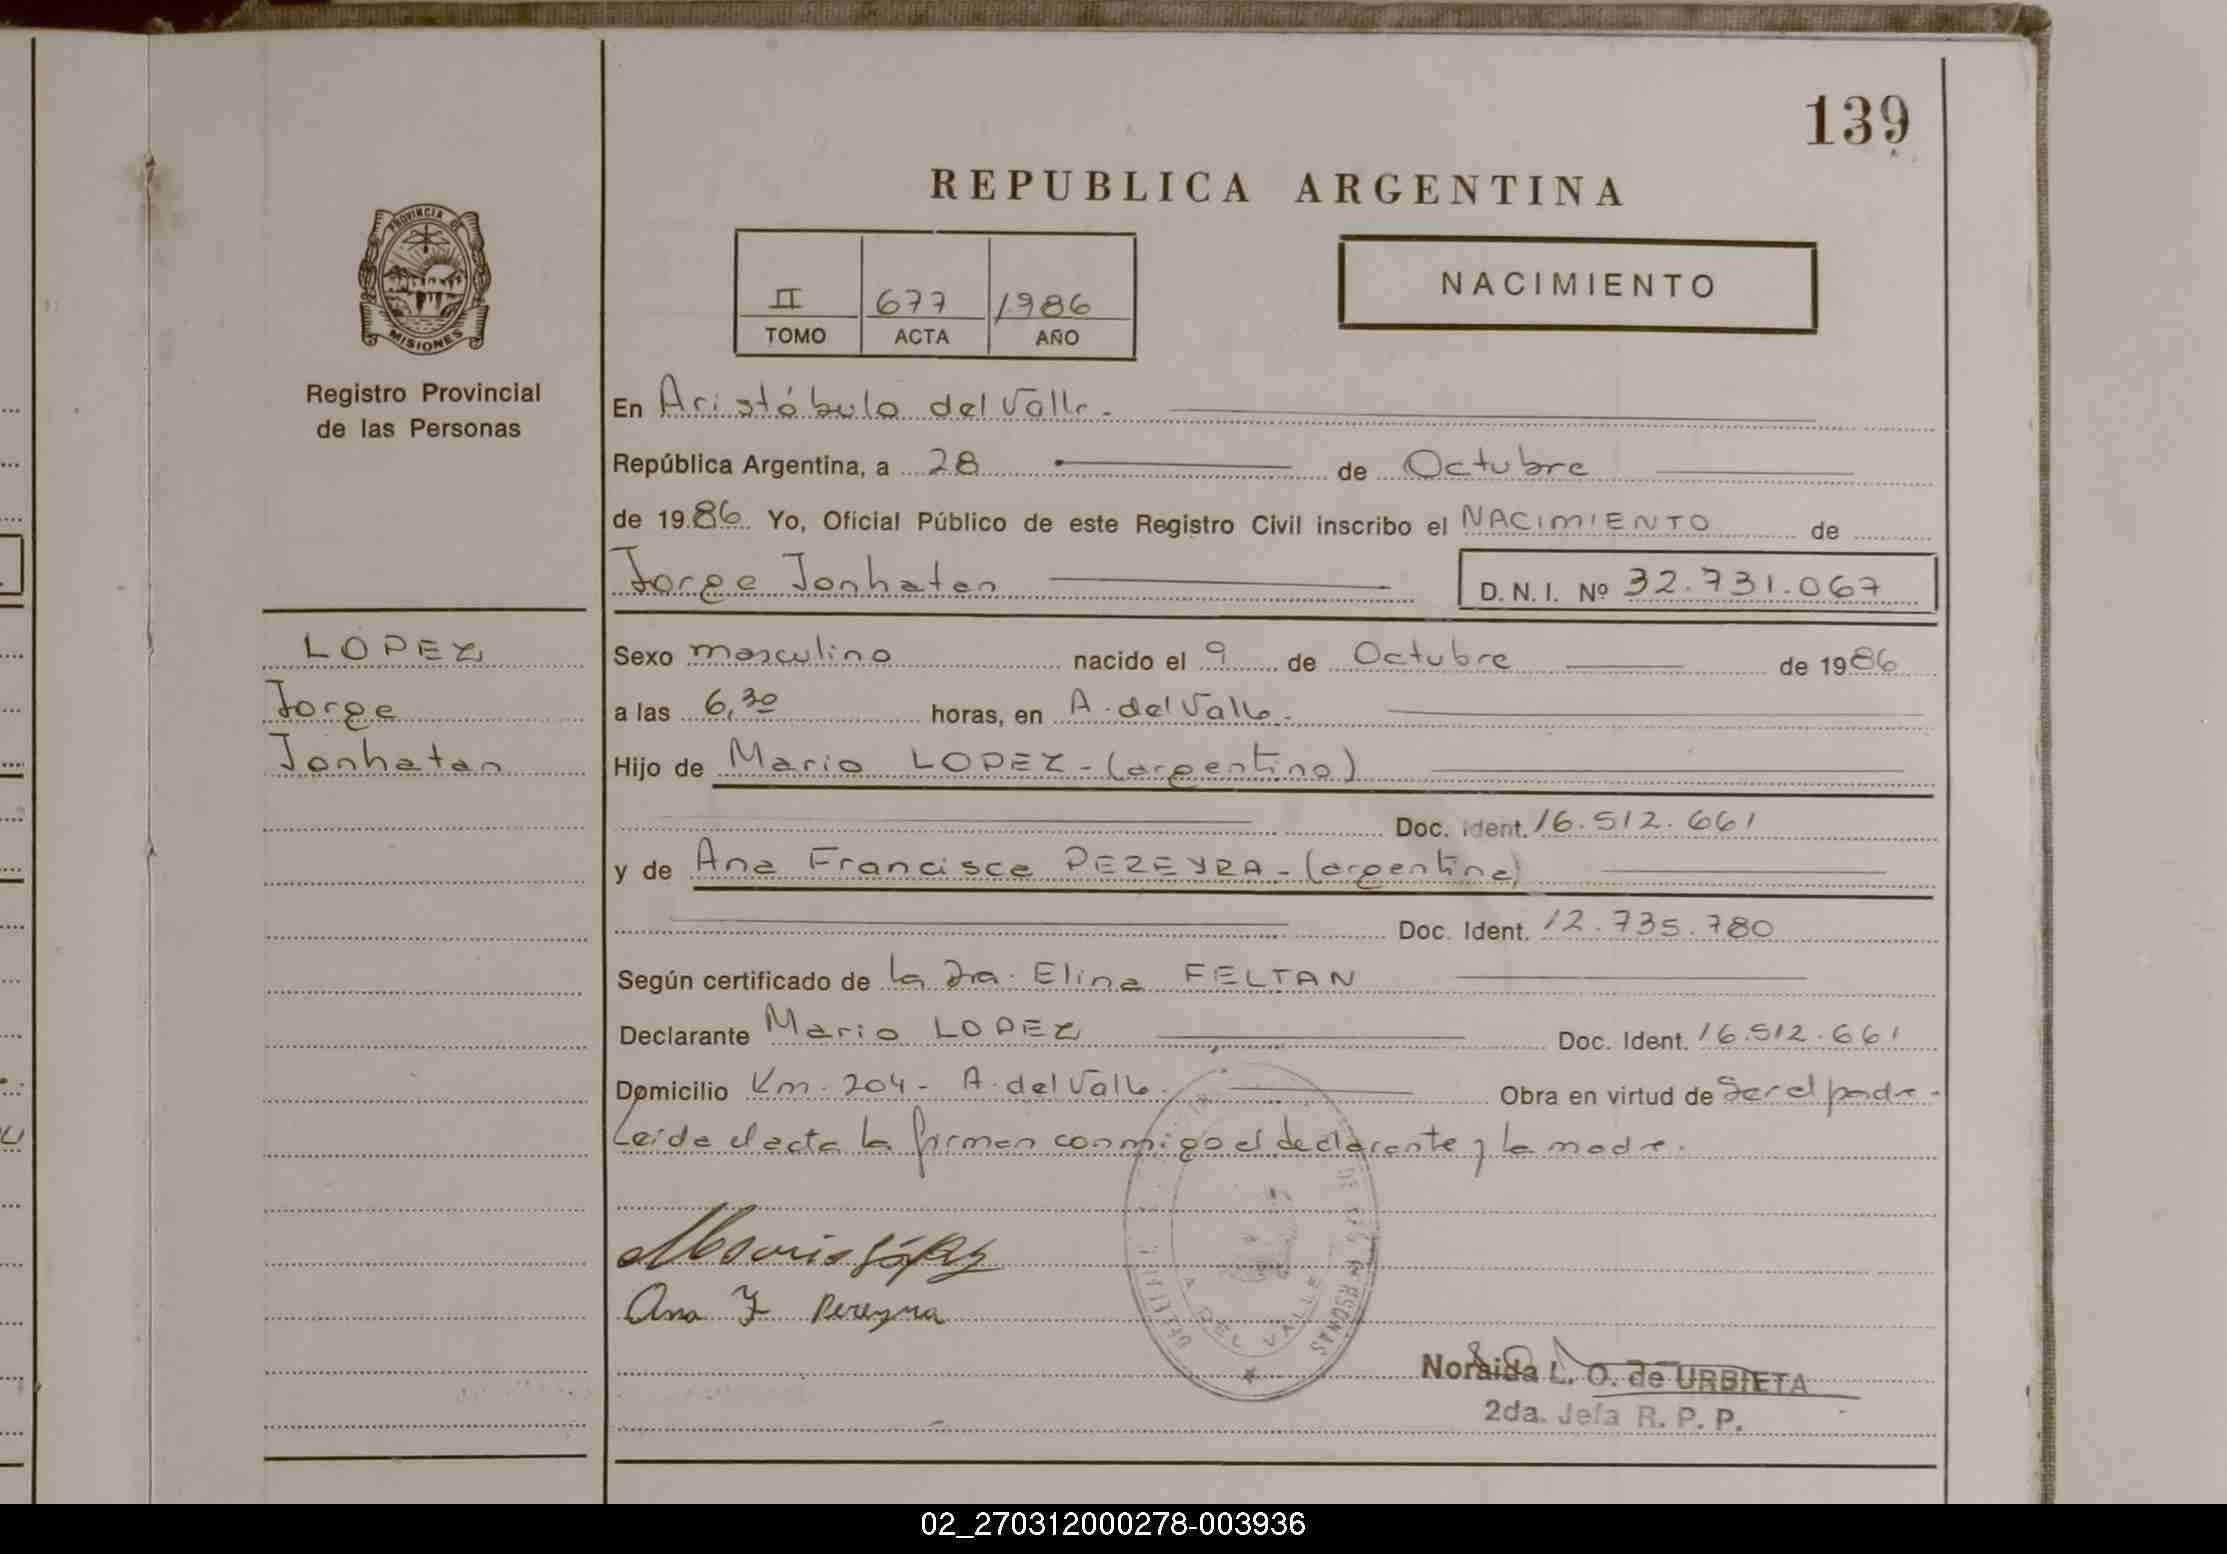 139
REPUBLICA ARGENTINA
PROVINCIA DE
MISIONES
Registro Provincial
de las Personas
II 677 1986
TOMO ACTA AÑO
NACIMIENTO
En Aristóbulo del Valle.
República Argentina, a 28 de Octubre
de 1986 Yo, Oficial Público de este Registro Civil inscribo el NACIMIENTO de
Jorge Jonhatan D. N. I. Nº 32.731.067
LOPEZ
Jorge
Jonhatan
Sexo masculino nacido el 9 de Octubre de 1986
a las 6,30 horas, en A. del Valle.
Hijo de Mario LOPEZ - (argentino)
Doc. ident. 16.512.661
y de Ana Francisca PEREYRA - (argentina)
Doc. Ident. 12.735.780
Según certificado de la Dra. Elina FELTAN
Declarante Mario LOPEZ Doc. Ident. 16.512.661
Domicilio Km. 204 - A. del Valle. Obra en virtud de Ser el padre -
Leída el acta la firman conmigo el declarante y la madre.
Mario López
Ana F Pereyra
DE LAS PERSONAS
A. DEL VALLE
Noraida L. O. de URBIETA
2da. Jefa R. P. P.
02_270312000278-003936